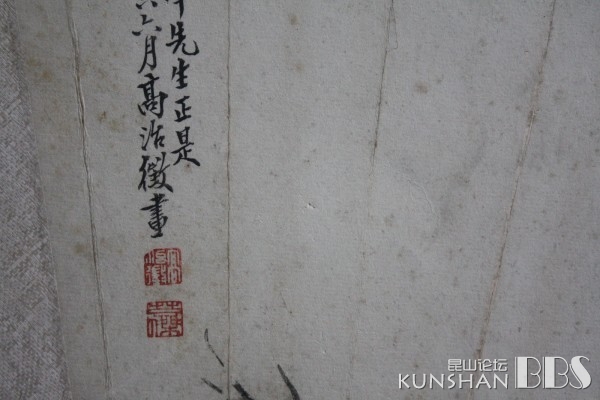 先生正是
六月髙治徵畫
昆山论坛
KUNSHAN BBS